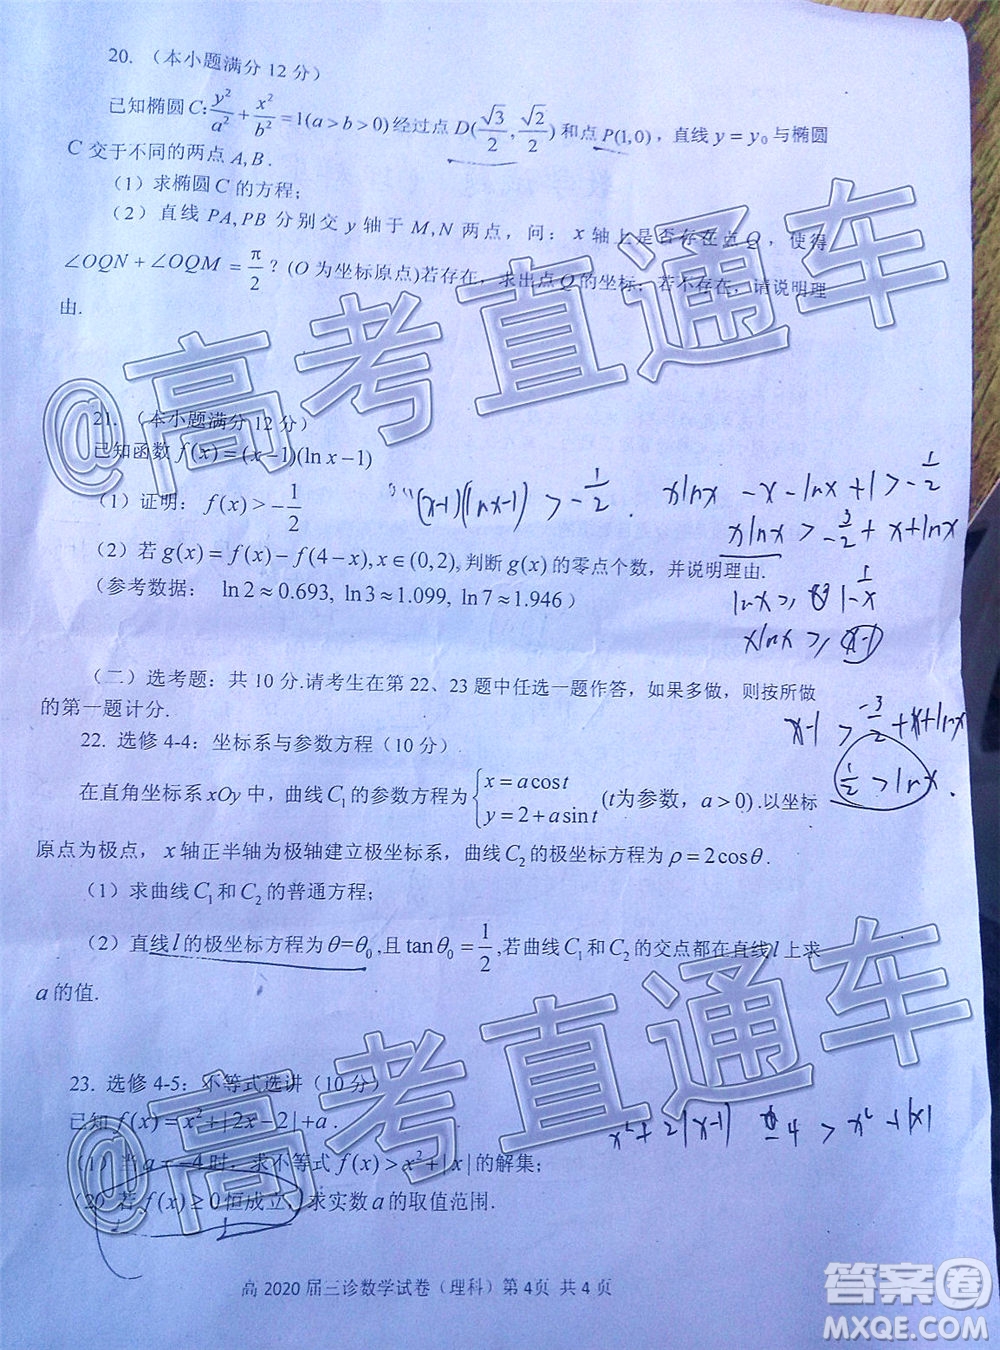 20. （本小题满分 12 分）
已知椭圆 C: y²/a² + x²/b² = 1(a > b > 0) 经过点 D(√3/2, √2/2) 和点 P(1,0)，直线 y = y₀ 与椭圆
C 交于不同的两点 A, B .
（1）求椭圆 C 的方程；
（2）直线 PA, PB 分别交 y 轴于 M, N 两点，问：x 轴上是否存在点 Q，使得
∠OQN + ∠OQM = π/2 ? (O 为坐标原点)若存在，求出点 Q 的坐标；若不存在，请说明理
由.
21. （本小题满分 12 分）
已知函数 f(x) = (x−1)(ln x−1)
（1）证明：f(x) > −1/2
(x-1)(lnx-1) > -1/2 .
xlnx - x - lnx + 1 > -1/2
xlnx > -3/2 + x + lnx
（2）若 g(x) = f(x) − f(4−x), x∈(0,2), 判断 g(x) 的零点个数，并说明理由.
（参考数据： ln2≈0.693, ln3≈1.099, ln7≈1.946）
lnx ≥ 1-1/x
xlnx ≥ (x-1)
（二）选考题：共 10 分.请考生在第 22、23 题中任选一题作答，如果多做，则按所做
的第一题计分.
x-1 > -3/2 + x + lnx
1/2 > lnx .
22. 选修 4-4：坐标系与参数方程（10 分）
在直角坐标系 xOy 中，曲线 C₁ 的参数方程为 { x = a cos t
y = 2 + a sin t (t为参数，a > 0) .以坐标
原点为极点，x 轴正半轴为极轴建立极坐标系，曲线 C₂ 的极坐标方程为 ρ = 2cosθ .
（1）求曲线 C₁ 和 C₂ 的普通方程；
（2）直线 l 的极坐标方程为 θ=θ₀, 且 tanθ₀ = 1/2, 若曲线 C₁ 和 C₂ 的交点都在直线 l 上求
a 的值.
23. 选修 4-5：不等式选讲（10 分）
已知 f(x) = x² + |2x−2| + a .
x² + 2|x-1| - 4 > x² + |x|
（1）当 a = −4 时，求不等式 f(x) > x² + |x| 的解集；
（2）若 f(x) ≥ 0 恒成立，求实数 a 的取值范围.
高 2020 届三诊数学试卷（理科）第 4页 共 4 页
@高考直通车
@高考直通车
答案圈
MXQE.COM